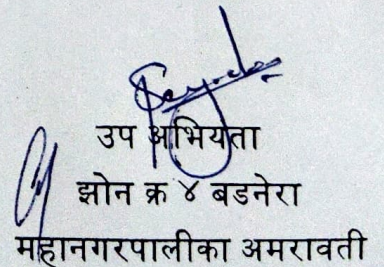 उप अभियंता
झोन क्र ४ बडनेरा
महानगरपालीका अमरावती